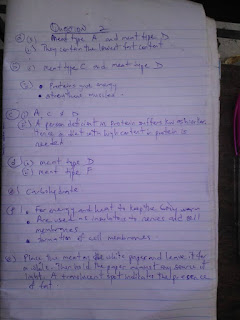 Question 2
(a) (i) Meat type A and meat type D
(ii) They contain the lowest fat content
(b) i) meat type C and meat type D
(ii) • Proteins and energy
• strengthens muscles.
(c) (i) A, C and D
(ii) A person deficient in protein suffers from kwashiorkor
diet with high content in protein is
needed
(d) (i) meat type D
(ii) meat type F
(e) Carbohydrate
(f) • For energy and heat to keep the body warm
• Are used as insulators to nerves and cell
membranes.
• formation of cell membranes.
Place the meat on the white paper and leave it for
a while. Then hold the paper against any source of
light. A translucent spot indicates the presence
of fat